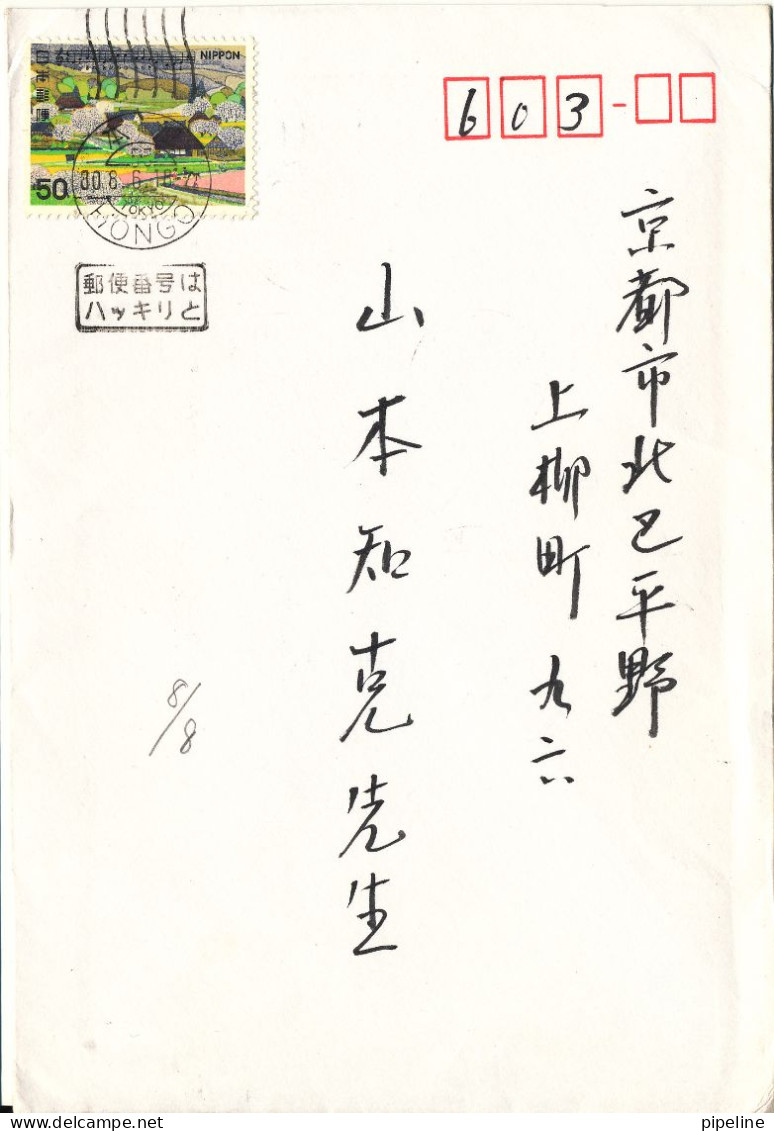 NIPPON
日本郵便
50
80.8.6.18-24
TOKYO
HONGO
郵便番号は
ハッキリと
603-
京都市北区平野
上柳町九六
山本知克先生
8/8
pipeline